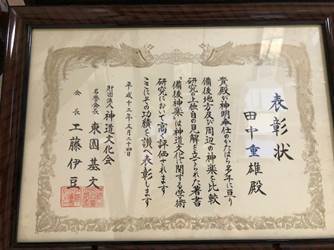 表彰状
田中重雄殿
貴殿が神明奉仕のかたはら多年に亘り
備後地方及び周辺の神楽を比較
研究の上独自の見解を立てられた著書
「備後神楽」は神道文化に関する学術
研究において高く評価されます
ここにその功績を讃へ表彰します
平成十二年五月二十四日
財団法人 神道文化会
名誉会長 東園基文
会長 工藤伊豆